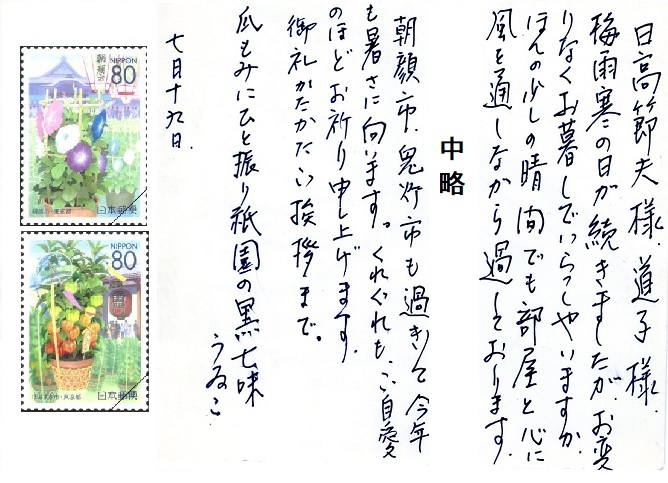 日高節夫様 道子様
梅雨寒の日が続きましたが、お変
りなくお暮しでいらっしゃいますか。
ほんの少しの晴間でも部屋と心に
風を通しながら過しております。
中略
朝顔市、鬼灯市も過ぎて今年
も暑さに向います。くれぐれも、ご自愛
のほどお祈り申し上げます。
御礼かたがたご挨拶まで。
瓜もみにひと振り祇園の黒七味
うゐこ
七月十九日.
朝顔市
NIPPON
80
日本郵便
NIPPON
80
日本郵便